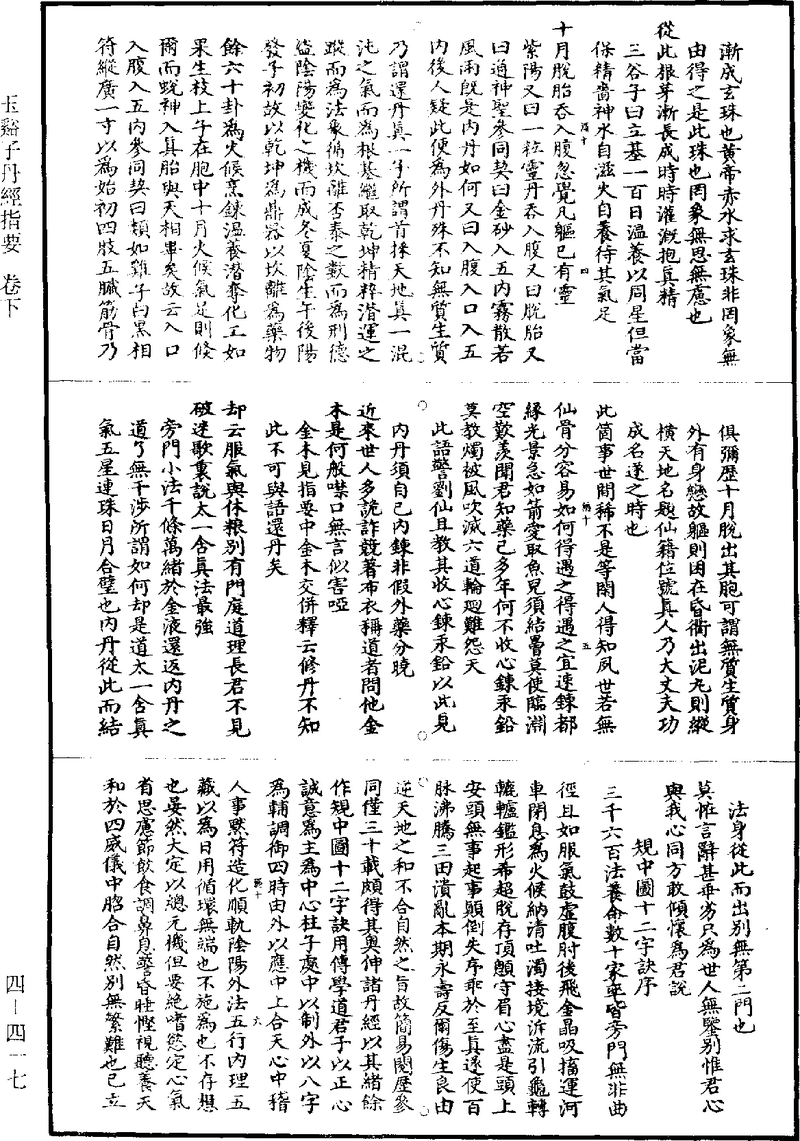 漸成玄珠也黃帝赤水求玄珠非罔象無
由得之是此珠也罔象無思無慮也
從此根芽漸長成時時灌溉抱真精
三谷子曰立基一百日溫養以周星但當
保精嗇神水自滋火自養待其氣足
十月脫胎吞入腹忽覺凡軀已有靈
紫陽又曰一粒靈丹吞入腹又曰脫胎又
曰通神聖參同契曰金砂入五內霧散若
風雨旣是內丹如何又曰入腹入口入五
內後人疑此便為外丹殊不知無質生質
乃謂還丹真一子所謂首採天地真一混
沌之氣而為根基繼取乾坤精粹潛運之
蹤而為法象循坎離否泰之數而為刑德
盜陰陽變化之機而成冬夏陰生午後陽
發子初故以乾坤為鼎器以坎離為藥物
餘六十卦為火候烹鍊溫養潛奪化工如
果生枝上子在胞中十月火候氣足則倏
爾而蛻神入真胎與天相畢矣故云入口
入腹入五內參同契曰類如雞子白黑相
符縱廣一寸以為始初四肢五臟筋骨乃
俱彌歷十月脫出其胞可謂無質生質身
外有身戀故軀則困在昏衢出泥丸則縱
橫天地名題仙籍位號真人乃大丈夫功
成名遂之時也
此箇事世間稀不是等閑人得知夙世若無
仙骨分容易如何得遇之得遇之宜速鍊都
緣光景急如箭愛取魚兒須結罾莫使臨淵
空歎羨聞君知藥已多年何不收心鍊汞鉛
莫教燭被風吹滅六道輪迴難怨天
此語警劉仙且教其收心鍊汞鉛以此見
內丹須自己內鍊非假外藥分曉
近來世人多詭詐競著布衣稱道者問他金
木是何般噤口無言似害啞
金木見指要中金木交併釋云修丹不知
此不可與語還丹矣
却云服氣與休粮別有門庭道理長君不見
破迷歌裏說太一含真法最強
旁門小法千條萬緒於金液還返內丹之
道了無干涉所謂如何却是道太一含真
氣五星連珠日月合璧也內丹從此而結
法身從此而出別無第二門也
莫恠言辭甚乖劣只為世人無鑒別惟君心
與我心同方敢傾懷為君說
規中圖十二字訣序
三千六百法養命數十家率皆旁門無非曲
徑且如服氣鼓虛腹肘後飛金晶吸搐運河
車閉息為火候納清吐濁接境泝流引龜轉
轆轤鑑形希超脫存頂顖守眉心盡是頭上
安頭無事起事顛倒失序乖於至真遂使百
脉沸騰三田潰亂本期永壽反爾傷生良由
逆天地之和不合自然之旨故簡易閱歷參
同僅三十載頗得其奧伸諸丹經以其緒餘
作規中圖十二字訣用傳學道君子以正心
誠意為主為中心柱子處中以制外以八字
為輔調御四時由外以應中上合天心中稽
人事默符造化順軌陰陽外法五行內理五
藏以為日用循環無端也不施為也不存想
也晏然大定以總元機但要絕嗜慾定心氣
省思慮節飲食調鼻息警昏睡慳視聽養天
和於四威儀中脗合自然別無繁難也已立
玉谿子丹經指要 卷下
四-四一七